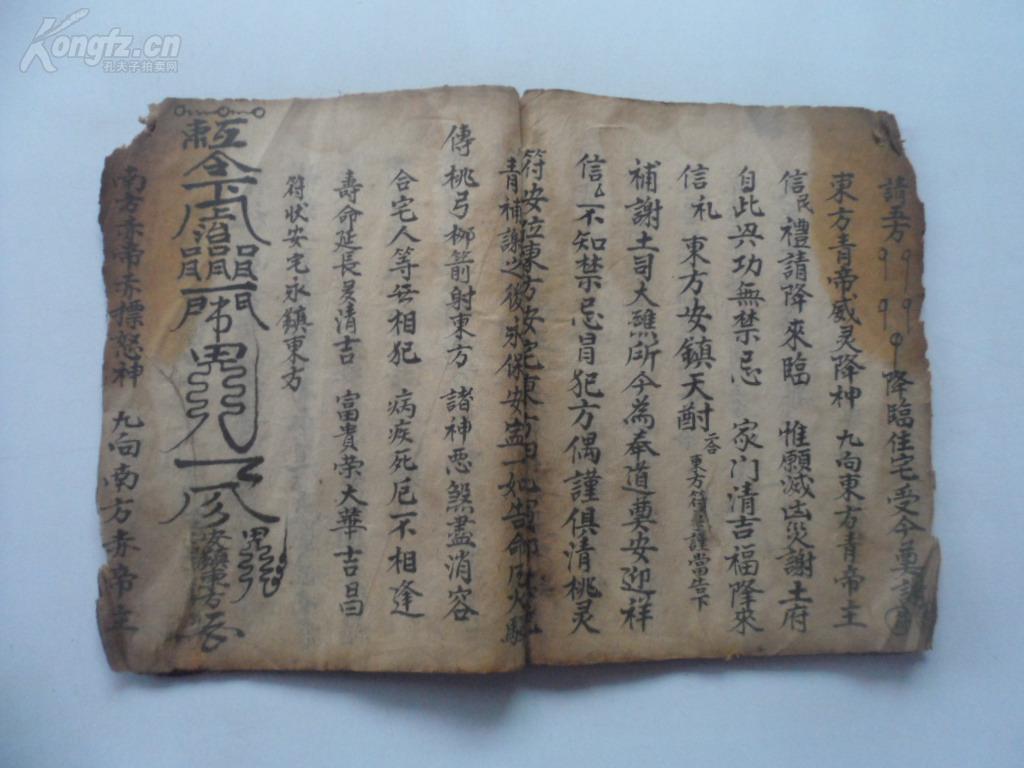 Kongfz.cn
孔夫子拍卖网
請五方 降臨住宅受今
東方青帝威灵降神 九向東方青帝主
信民 禮請降來臨 惟願滅凶災謝土府
自此兴功無禁忌 家门清吉福隆來
信礼 東方安鎮天酎 東方符 謹當告下
補謝土司大 所今為奉道要安迎祥
信 不知禁忌冒犯方偶謹俱清桃灵
符安位東方安宅東方
青補謝之後永保安 一如告命
傳桃弓柳箭射東方 諸神悪煞盡消容
合宅人等 相犯 病疾死厄不相逢
壽命延長灵清吉 富貴荣大華吉昌
符状安宅永鎮東方
令 治 安鎮東方
南方赤帝赤標怒神 九向南方赤帝主